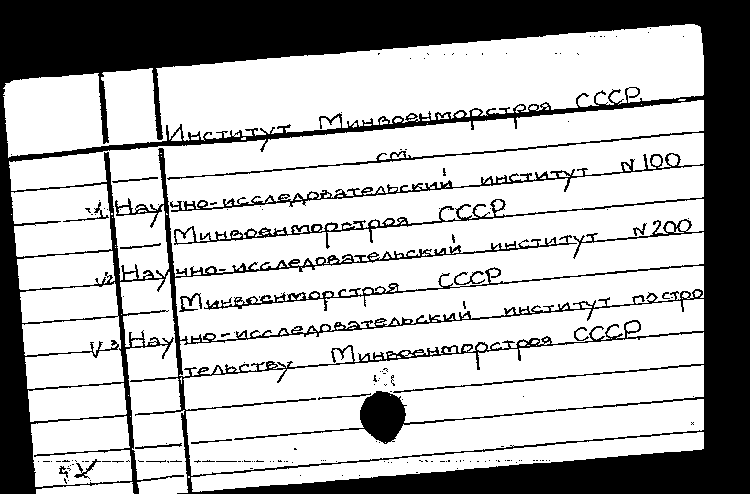 Институт Минвоенморстроя СССР
см.
V1. Научно-исследовательский институт N100
Минвоенморстроя СССР
V2. Научно-исследовательский институт N200
Минвоенморстроя СССР
V3. Научно-исследовательский институт постро
тельству Минвоенморстроя СССР